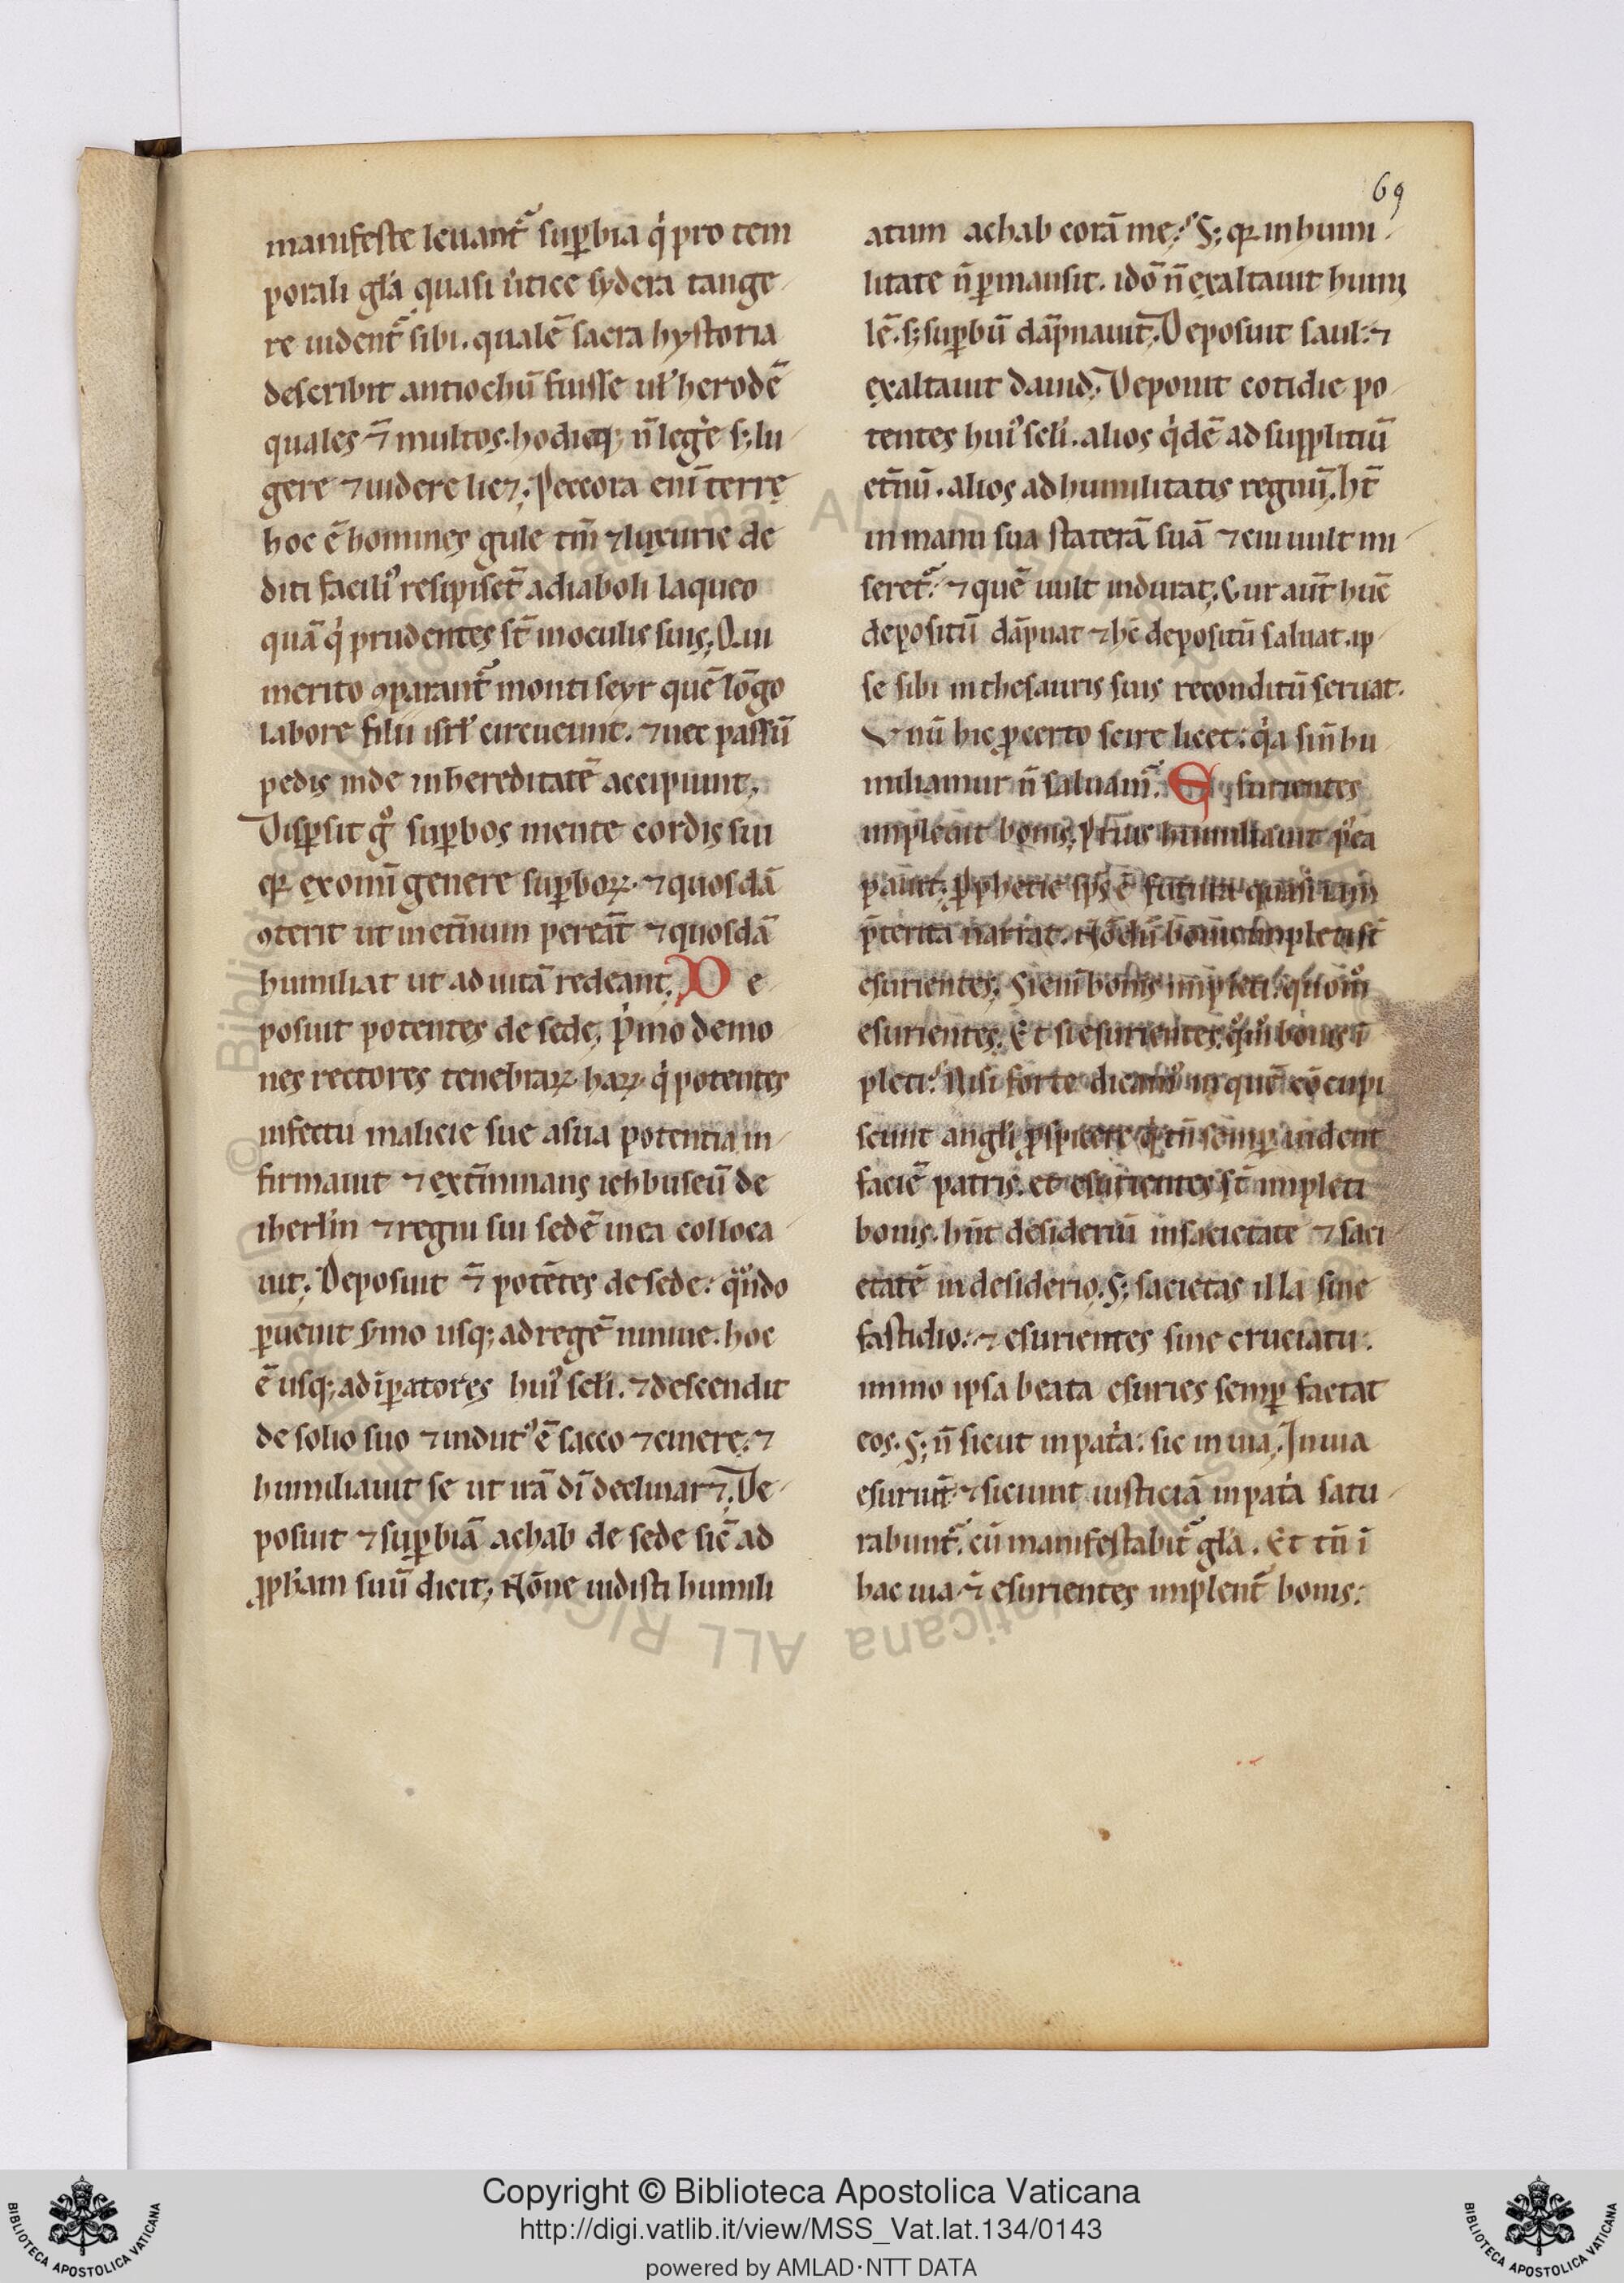 69
manifeste leuant᷑ suꝑbia q̇ pro tem
porali gl̄a quasi u̇tice sydera tange
re uident᷑ sibi. qualē sacra hystoria
describit antiochū fuisse ul̛ herodē
quales ⁊̄ multos. hodieq; n̄ legėe s; lu
gere ⁊ uidere lic⁊; Peccora eni̅ terrę
hoc ē homines gule tm̄ ⁊ luxurie de
diti facili᷒ resipisct̄ a diaboli laqueo
quā q̇ prudentes st̄ in oculis suis; Qui
merito ꝯparant᷑ monti seyr quē lōgo
labore filii isrl̛ circueunt. ⁊ nec passū
pedis inde in hereditatē accipiunt;
Disꝑsit gͦ suꝑbos mente cordis sui
qꝛ ex omi̅ genere suꝑboꝝ. ⁊ quosdā
ꝯterit ut inet̄num pereāt ⁊ quosdā
humiliat ut ad uitā redeant; De
posuit potentes de sede; P̍mo demo
nes rectores tenebraꝝ haꝝ. q̇ potentes
infectu malicie sue a sua potentia in
firmauit ⁊ ext̄minans iebbuseū de
iherl̛m ⁊ regni sui sedē in ea colloca
uit; Deposuit ⁊̄ potētes de sede: qͣndo
ꝑuenit s̍mo usq; ad regē niniue. hoc
ē usq; ad īꝑatores hui᷒ scl̛i. ⁊ descendit
de solio suo ⁊ indut᷒ ē sacco ⁊ cinere. ⁊
humiliauit se ut irā dī declinar⁊; De
posuit ⁊ suꝑbiā achab de sede sic̄ ad
ꝓph̄am suū dicit; Nōne uidisti humili
atum achab corā me? S; qꝛ in humi
litate n̄ ꝑmansit. idō n̄ exaltauit humi
lē. s; suꝑbū dāpnauit; Deposuit saul: ⁊
exaltauit dauid; Deponit cotidie po
tentes hui᷒ scl̛i. alios q̇dē ad suppliciū
et̄nū. alios ad humilitatis regnū; Ht̄
in manu sua staterā suā ⁊ cui uult mi
seret᷑: ⁊ quē uult indurat; Cur aut̄ hūc
depositū dāpnat ⁊ hc̄ depositū saluat. ip
se sibi in thesauris suis reconditū seruat.
Unū hic ꝓcerto scire licet: q̇a si n̄ hu
miliamur n̄ saluam᷑. Esurientes
impleuit bonis;
esurientes; Si eni̅ bonis impleti: quomͦ
esurientes; Et si esurientes: bonis ī
pleti? Nisi forte dicam᷒ in quē cōcupi
scunt angl̛i ꝓspicere semꝑ uident
faciē patris. et esurientes st̄ impleti
bonis. hn̄t desideriū in sacietate ⁊ saci
etatē in desiderio. S; sacietas illa sine
fastidio: ⁊ esurientes sine cruciatu:
immo ipsa beata esuries semꝑ saciat
eos. S; n̄ sicut in pat̍a: sic in uia; In uia
esuriūt ⁊ siciunt iusticiā in pat̍a satu
rabunt᷑. cū manifestabit᷑ gl̄a. Et tn̄ ī
hac uia ⁊̄ esurientes implent᷑ bonis:
Copyright © Biblioteca Apostolica Vaticana
http://digi.vatlib.it/view/MSS_Vat.lat.134/0143
powered by AMLAD·NTT DATA
BIBLIOTECA APOSTOLICA VATICANA
BIBLIOTECA APOSTOLICA VATICANA